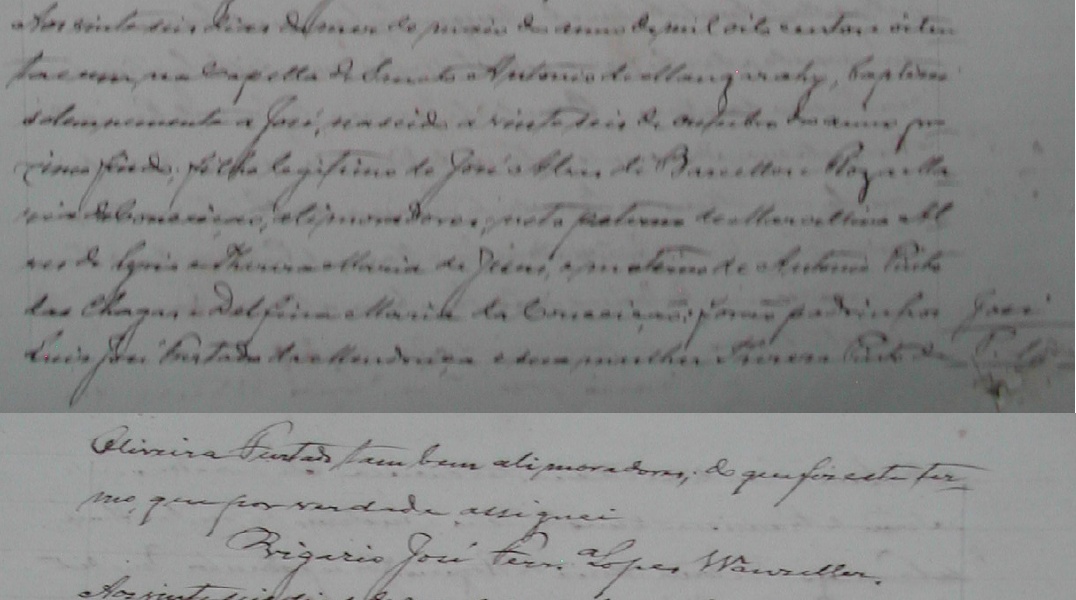 Aos vinte seis dias do mes de maio do anno de mil oito centos e oiten
ta e um, na Capella de Santo Antonio do Mangarahy, baptisei
solemnemente a José, nascido a vinte seis de outubro do anno pro
ximo findo, filho legitimo de José Alves de Barcellos e Roza Ma
ria da Conceição, ali moradores, neto paterno de Marcellina Al
ves de e Thereza Maria de Jesus, e materno de Antonio Pinto
das Chagas e Delfina Maria da Conceição; forão padrinhos
Luis José Furtado de Mendonça e sua mulher Thereza Pinto de
José
Oliveira Furtado tambem ali moradores; do que fiz este ter
mo, que por verdade assignei
O Vigario José Ferr.ª Lopes Wanzeller.
Aos vinte seis dias